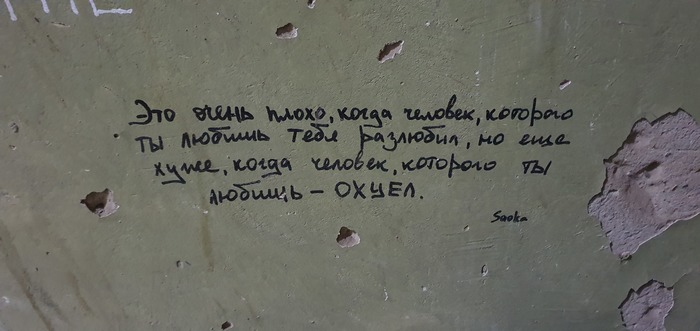 Это очень плохо, когда человек, которого
ты любишь тебя разлюбил, но еще
хуже, когда человек, которого ты
любишь – ОХУЕЛ.
Saoka